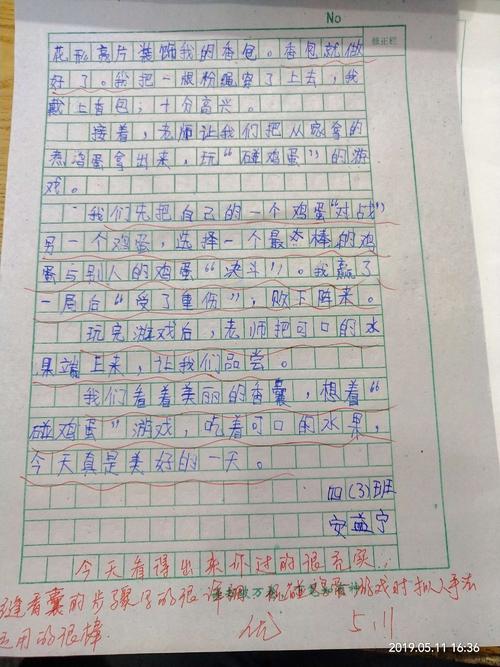 No
修正栏
花形亮片装饰我的香包。香包就做
好了。我把一根粉绳穿了上去，我
戴上香包，十分高兴。
接着，老师让我们把从家拿的
煮鸡蛋拿出来，玩“碰鸡蛋”的游
戏。
我们先把自己的一个鸡蛋“对战”
另一个鸡蛋，选择一个最棒的鸡
蛋与别人的鸡蛋“决斗”。我赢了
一局后“受了重伤”，败下阵来。
玩完游戏后，老师把可口的水
果端上来，让我们品尝。
我们看着美丽的香囊，想着“
碰鸡蛋”游戏，吃着可口的水果，
今天真是美好的一天。
四(3)班
安益宁
今天看得出来你过的很充实，
缝香囊的步骤写的很详 碰 游戏时拟人手法
运用的很棒
优
5.11
2019.05.11 16:36